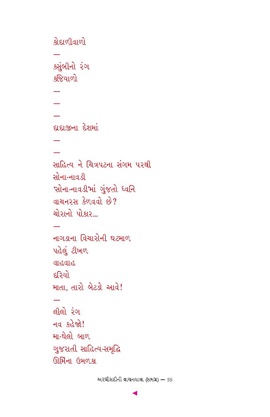 કોદાળીવાળો
—
કસુંબીનો રંગ
કજિયાળો
—
—
—
દાદાજીના દેશમાં
—
—
સાહિત્ય ને ચિત્રપટના સંગમ પરથી
સોના-નાવડી
'સોના-નાવડી'માં ગુંજતો ધ્વનિ
વાચનરસ કેળવવો છે?
ચોરાનો પોકાર...
—
નાગડાના વિચારોની ઘટમાળ
પહેલું ટીખળ
વાહવાહ
દરિયો
માતા, તારો બેટડો આવે!
—
લીલો રંગ
નવ કહેજો!
મા-ઘેલો બાળ
ગુજરાતી સાહિત્ય-સમૃદ્ધિ
ઊર્મિના ઉમળકા
અરધીસદીની વાચનયાત્રા